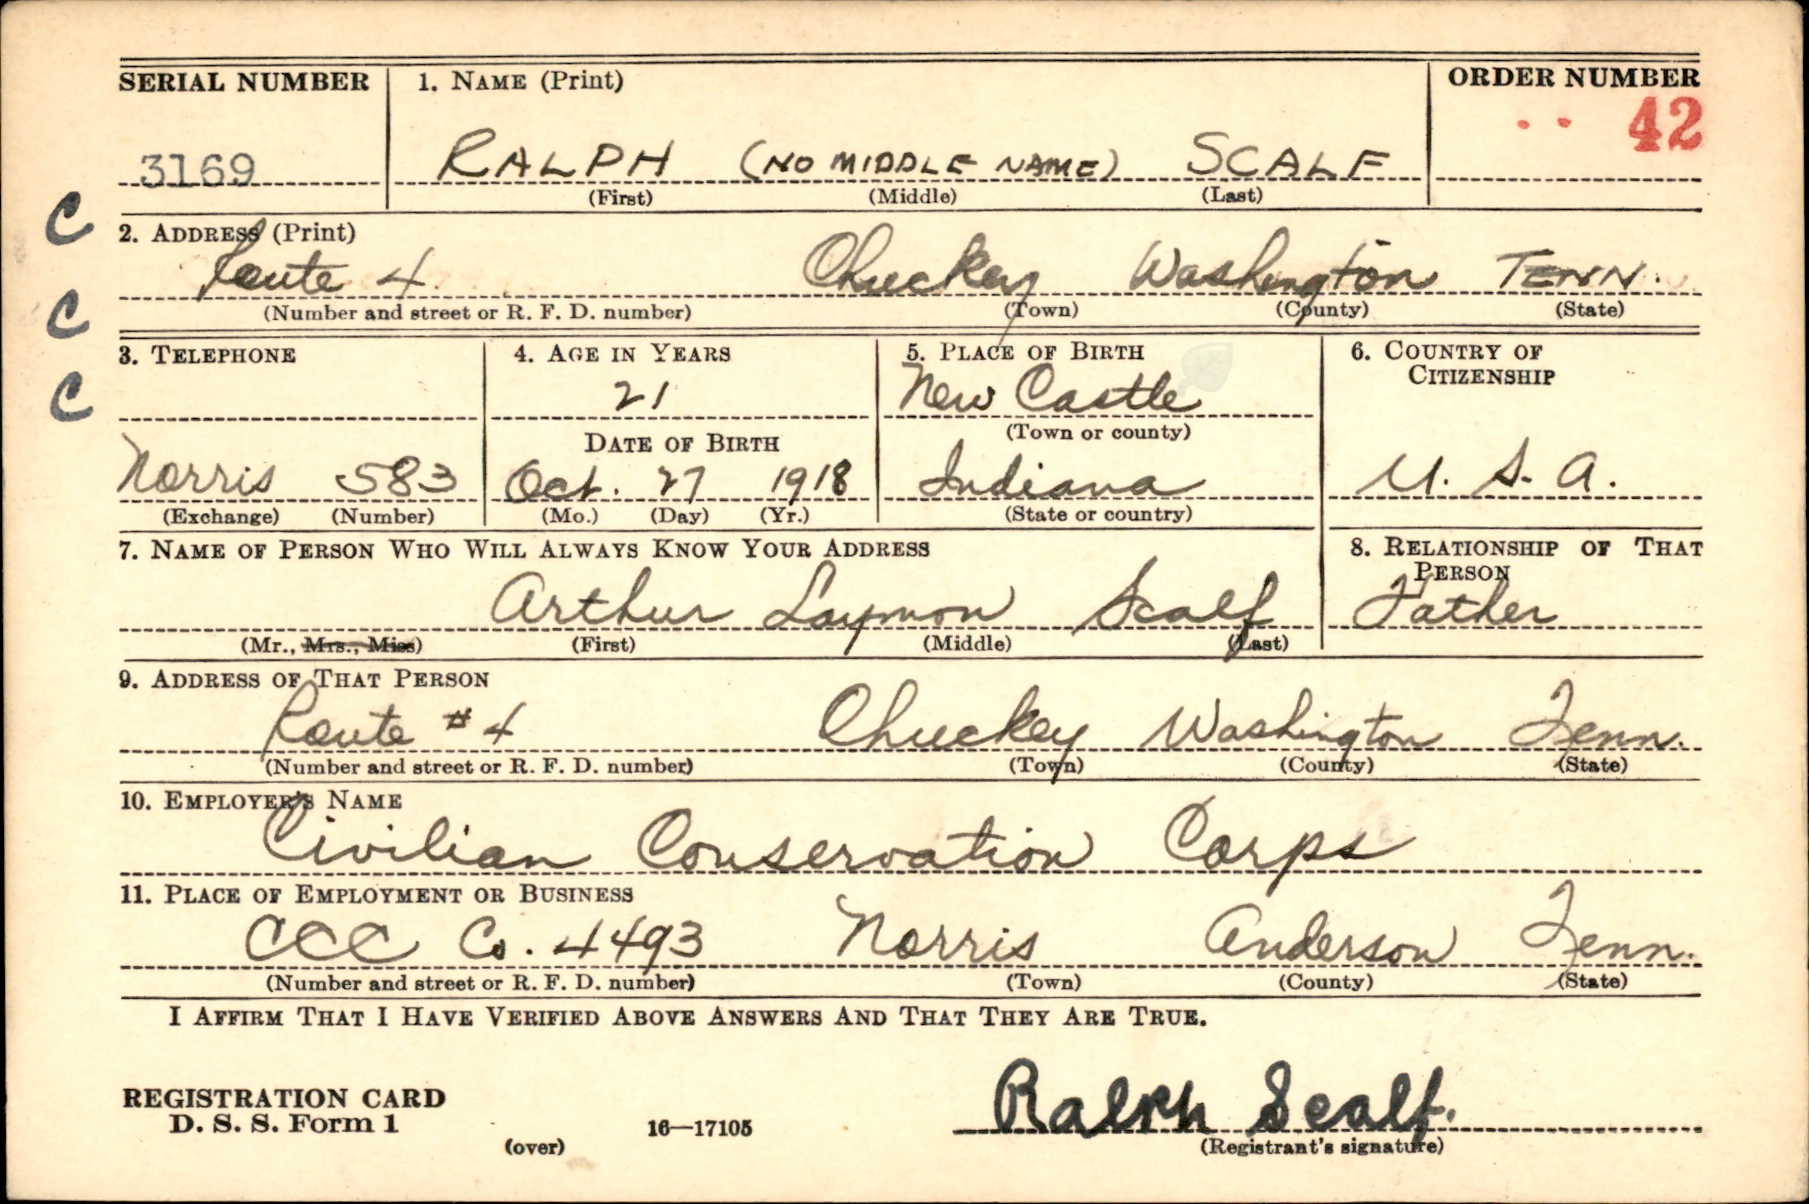 SERIAL NUMBER 1. NAME (Print) ORDER NUMBER
42
3169 RALPH (NO MIDDLE NAME) SCALF
(First) (Middle) (Last)
C
2. ADDRESS (Print)
Route 4 Chuckey Washington TENN.
(Number and street or R. F. D. number) (Town) (County) (State)
C
3. TELEPHONE 4. AGE IN YEARS 5. PLACE OF BIRTH 6. COUNTRY OF CITIZENSHIP
C
21 New Castle
(Town or county)
DATE OF BIRTH
Norris 583 Oct. 27 1918 Indiana U. S. A.
(Exchange) (Number) (Mo.) (Day) (Yr.) (State or country)
7. NAME OF PERSON WHO WILL ALWAYS KNOW YOUR ADDRESS 8. RELATIONSHIP OF THAT PERSON
Arthur Laymon Scalf Father
(Mr., Mrs., Miss) (First) (Middle) (Last)
9. ADDRESS OF THAT PERSON
Route #4 Chuckey Washington Tenn.
(Number and street or R. F. D. number) (Town) (County) (State)
10. EMPLOYER'S NAME
Civilian Conservation Corps
11. PLACE OF EMPLOYMENT OR BUSINESS
CCC Co. 4493 Norris Anderson Tenn.
(Number and street or R. F. D. number) (Town) (County) (State)
I AFFIRM THAT I HAVE VERIFIED ABOVE ANSWERS AND THAT THEY ARE TRUE.
REGISTRATION CARD
D. S. S. Form 1 16—17105 Ralph Scalf.
(over) (Registrant's signature)